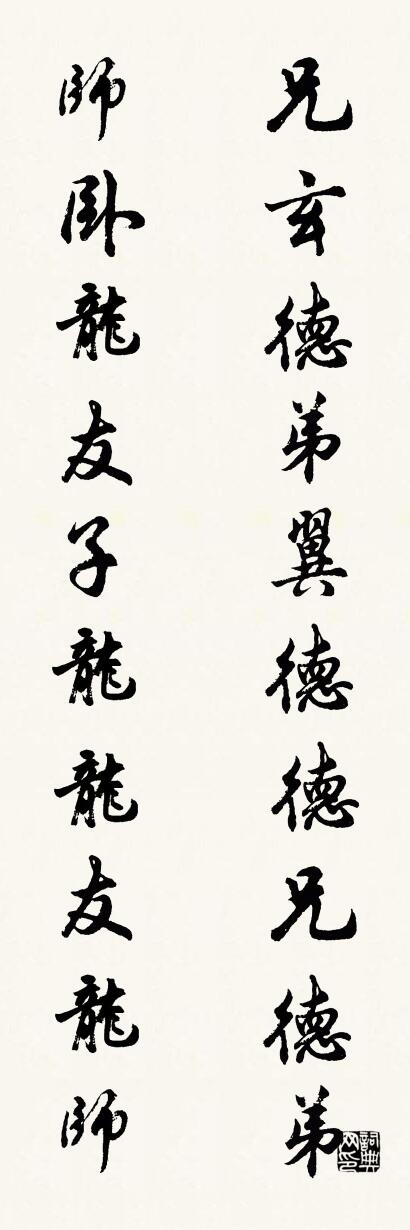 兄玄德弟翼德德兄德弟
師卧龍友子龍龍友龍師
詞典网印